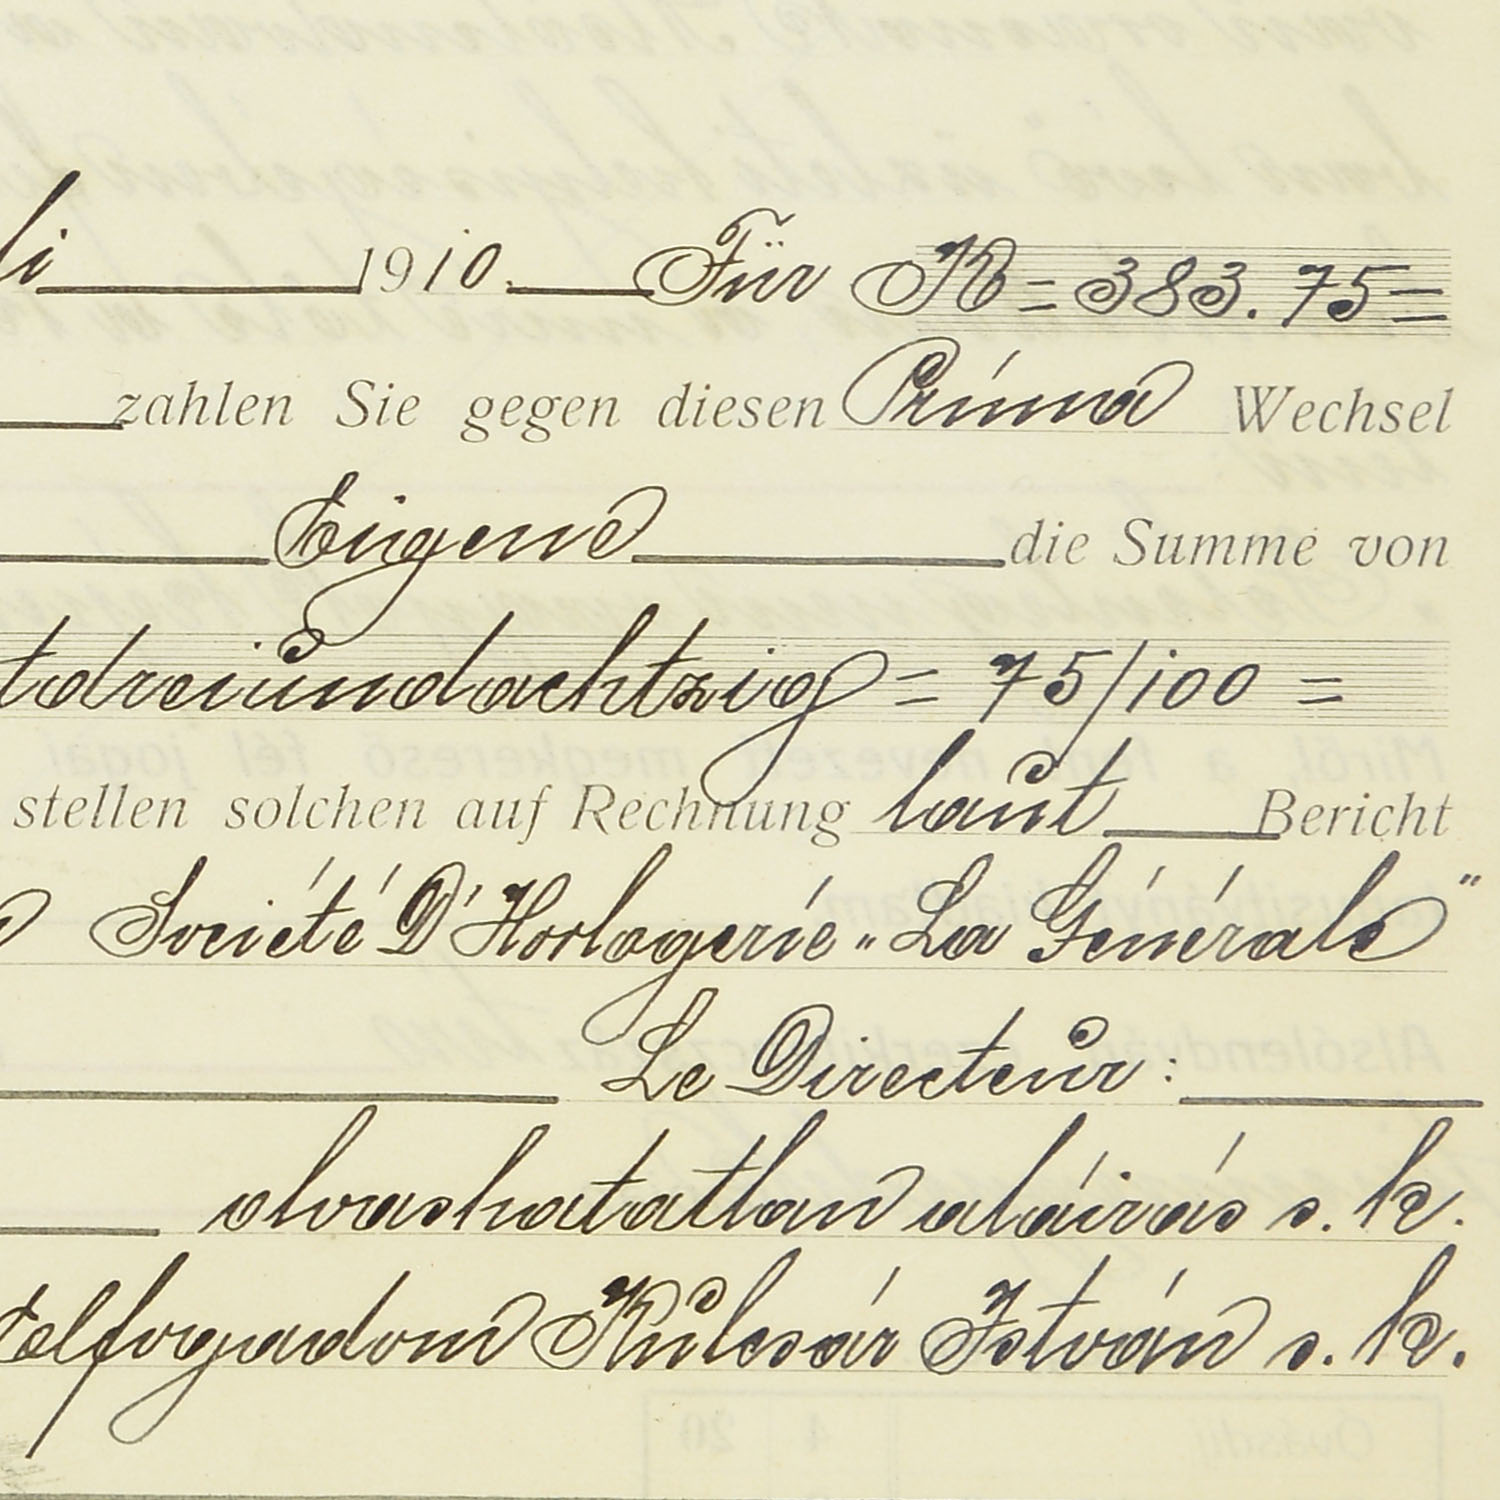 li 1910. Für K = 383.75 =
zahlen Sie gegen diesen Prima Wechsel
Eigene die Summe von
tdreiundachtzig = 75/100 =
stellen solchen auf Rechnung laut Bericht
Société D'Horlogerie „La Générale"
Le Directeur:
olvashatatlan aláirás s. k.
elfogadom Kulcsár István s. k.